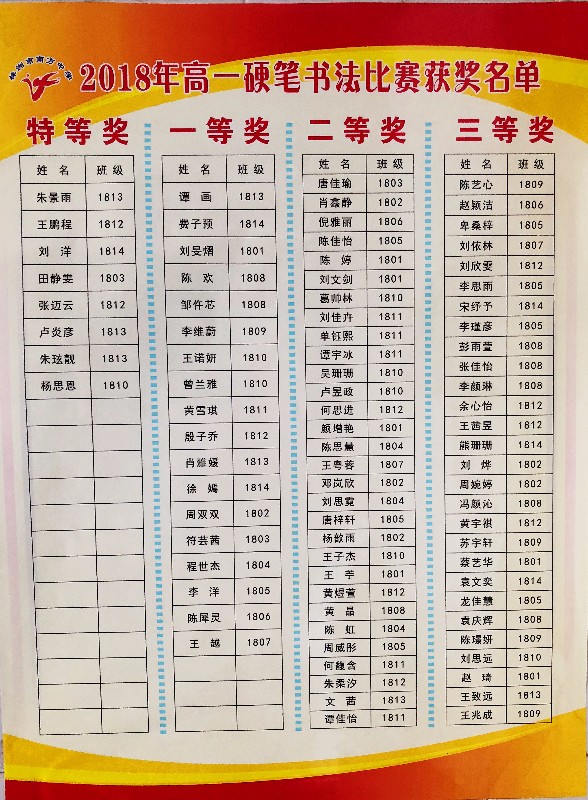 株洲市南方中学
2018年高一硬笔书法比赛获奖名单
特等奖
姓 名 班 级
朱景雨 1813
王鹏程 1812
刘 洋 1814
田静雯 1803
张迈云 1812
卢炎彦 1813
朱玹靓 1813
杨思恩 1810
一等奖
姓 名 班 级
谭 画 1813
费子预 1814
刘旻熠 1801
陈 欢 1808
邹仵芯 1808
李维蔚 1809
王诺妍 1810
曾兰雅 1810
黄雪琪 1811
殷子乔 1812
肖雅媛 1813
徐 嫣 1814
周双双 1802
符芸茜 1803
程世杰 1804
李 洋 1805
陈犀灵 1806
王 越 1807
二等奖
姓 名 班 级
唐佳瑜 1803
肖鑫静 1802
倪雅丽 1806
陈佳怡 1805
陈 婷 1801
刘文剑 1801
葛帅林 1810
刘佳卉 1811
单钰熙 1811
谭宇冰 1811
吴珊珊 1810
卢昱政 1810
何思进 1812
颜增艳 1801
陈思慧 1804
王粤蓉 1807
邓岚欣 1802
刘思霓 1804
唐梓轩 1805
杨歆雨 1802
王子杰 1810
王 芋 1801
黄煜萱 1812
黄 晶 1808
陈 虹 1804
周威彤 1805
何馥含 1811
朱柔汐 1812
文 茜 1813
谭佳怡 1811
三等奖
姓 名 班 级
陈艺心 1809
赵颖洁 1806
卑桑梓 1805
刘依林 1807
刘欣雯 1812
李思雨 1805
宋纾予 1814
李瑾彦 1805
彭雨萱 1808
张佳怡 1808
李颜琳 1808
余心怡 1812
王茜昱 1812
熊珊珊 1814
刘 烨 1802
周婉婷 1802
冯颜沁 1808
黄宇祺 1812
苏宇轩 1809
蔡艺华 1801
袁文奕 1814
龙佳慧 1805
袁庆辉 1808
陈璟妍 1809
刘思远 1810
赵 琦 1801
王致远 1813
王兆成 1809